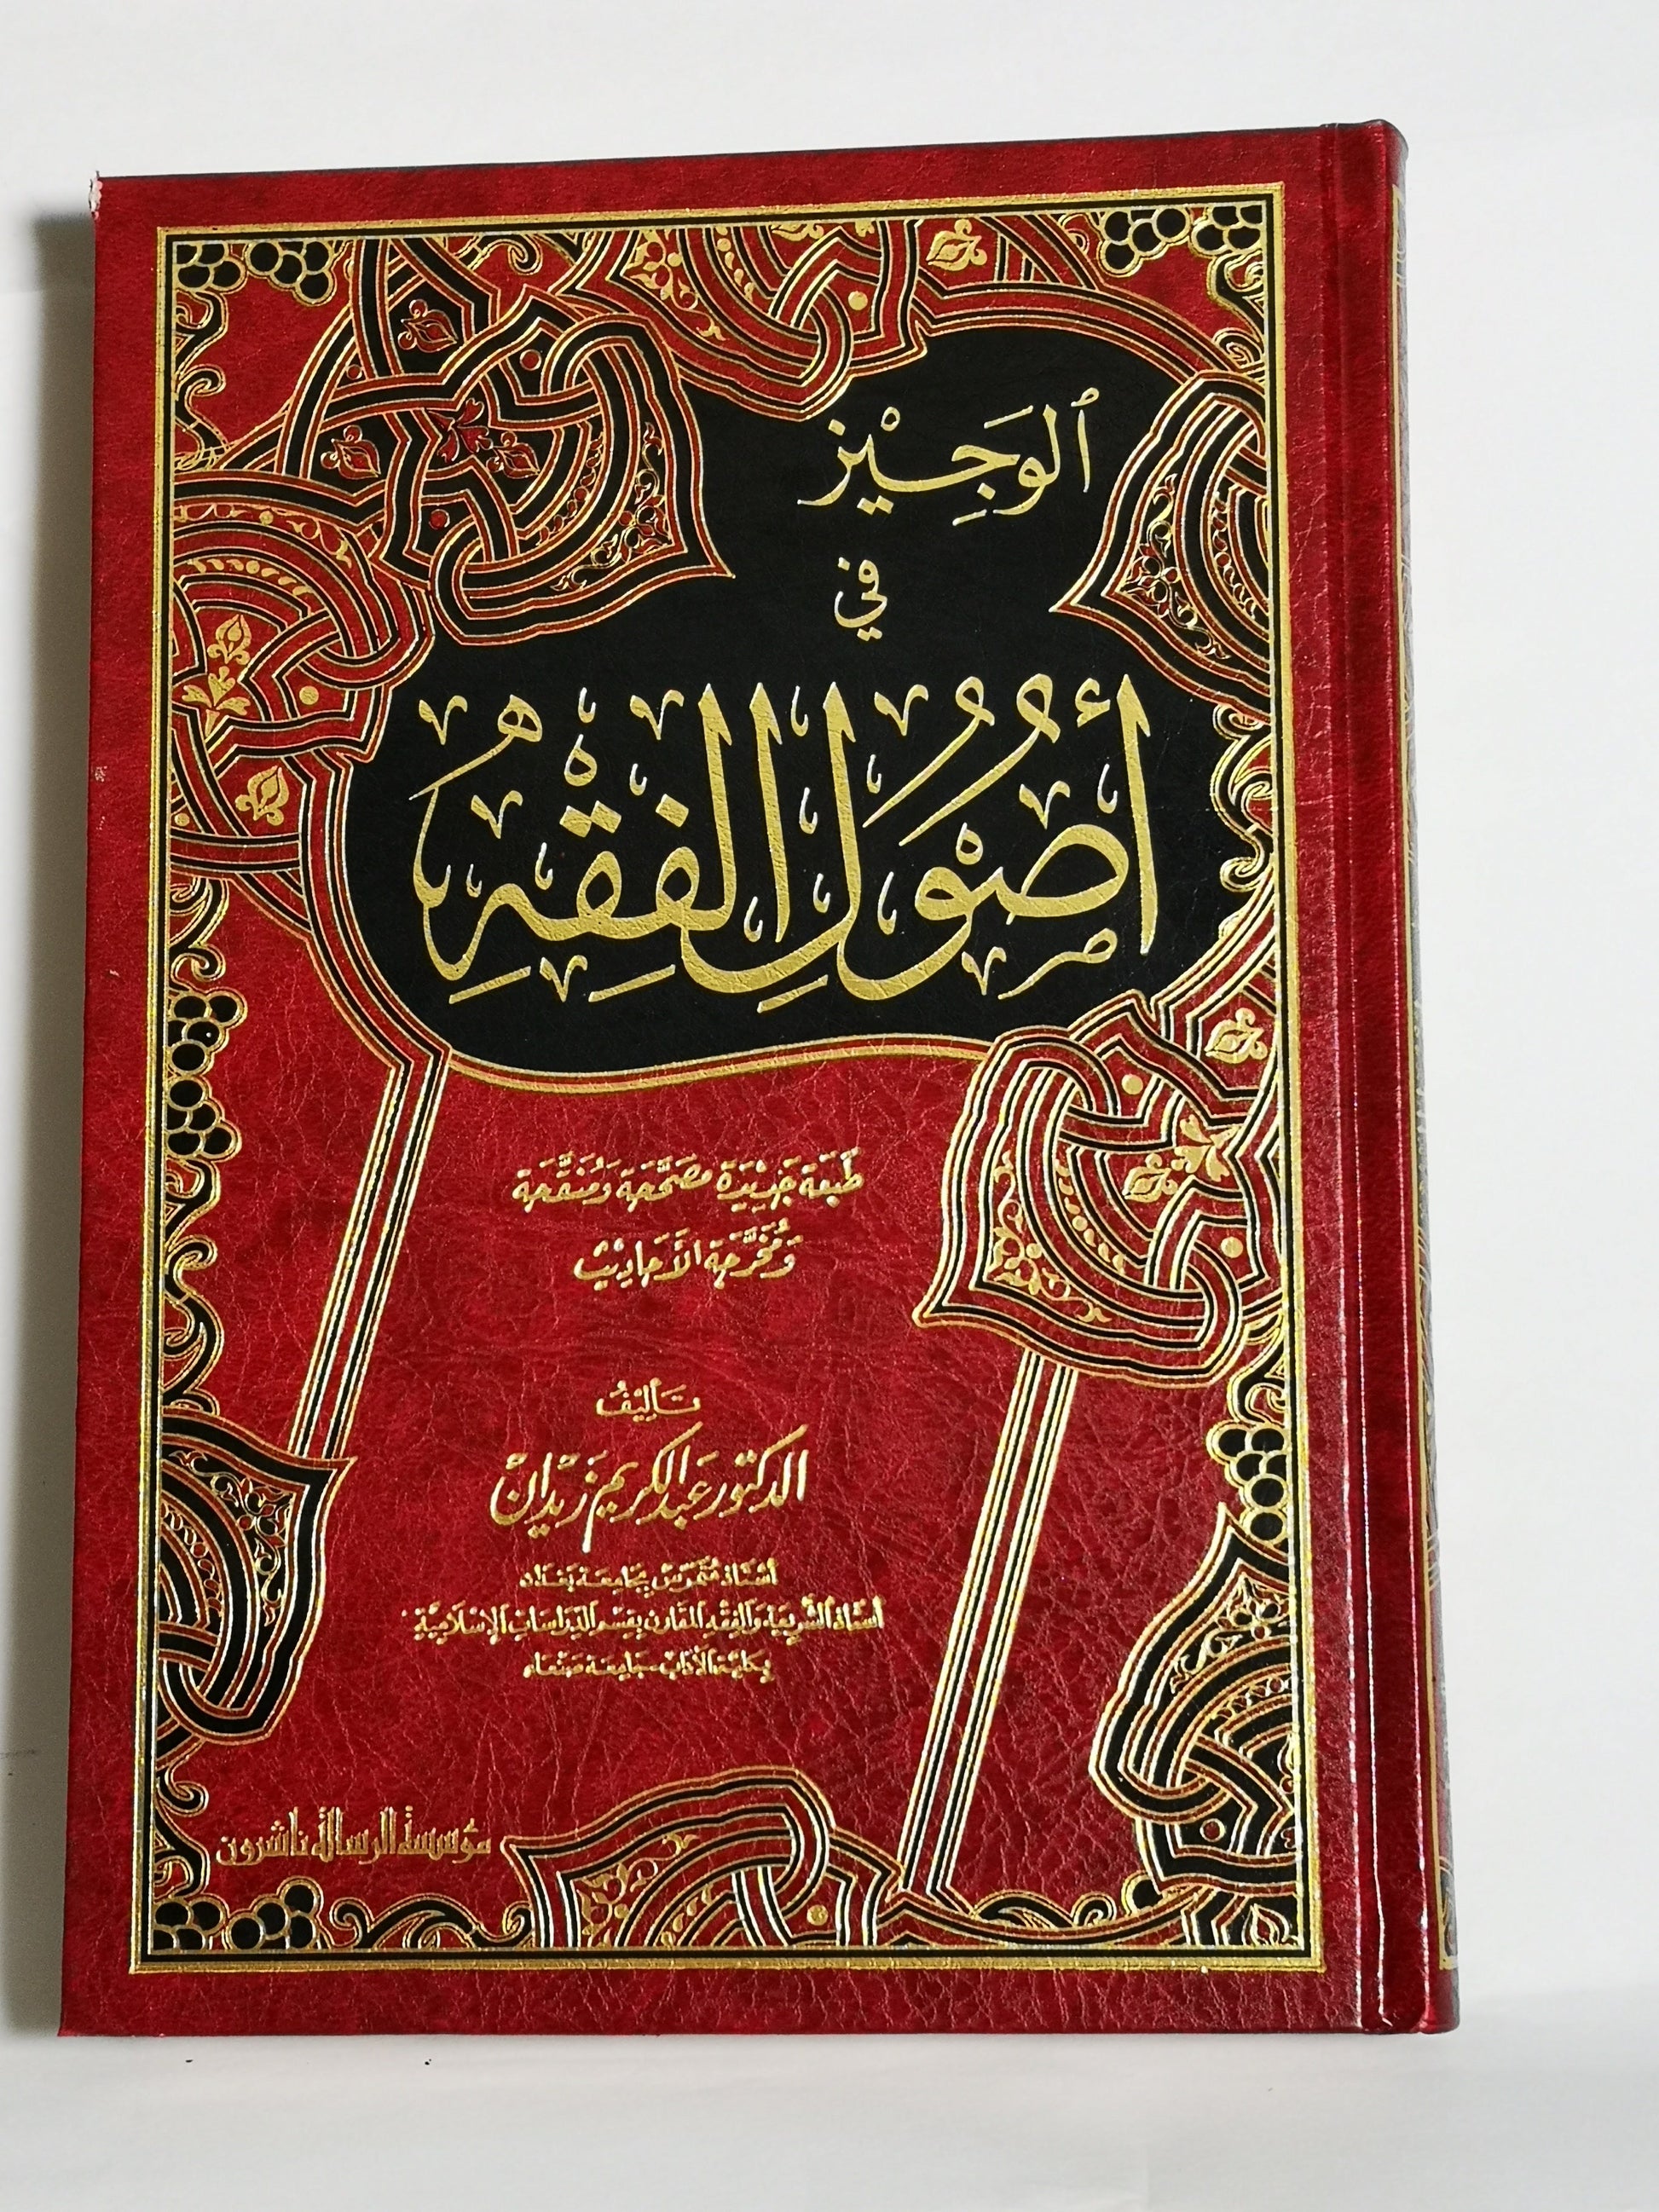 الوَجِيْز
في
أُصُوْلِ الفِقْهِ
طَبعَة جَدِيْدَة مصَحَّحَة وَمُنَقَّحَة
وَمُخَرَّجَة الأَحَادِيْث
تَأليفُ
الدكتور عَبد الكريم زَيْدَان
أستاذ مُتمَرّس بجَامِعَة بَغدَاد
أستاذ الشَّرِيعَة وَالفِقْه المقَارن بقِسْم الدّرَاسَات الإِسْلَاميَّة
بكليَّة الآدَاب - جَامِعَة صَنعَاء
مؤسسة الرسالة ناشرون